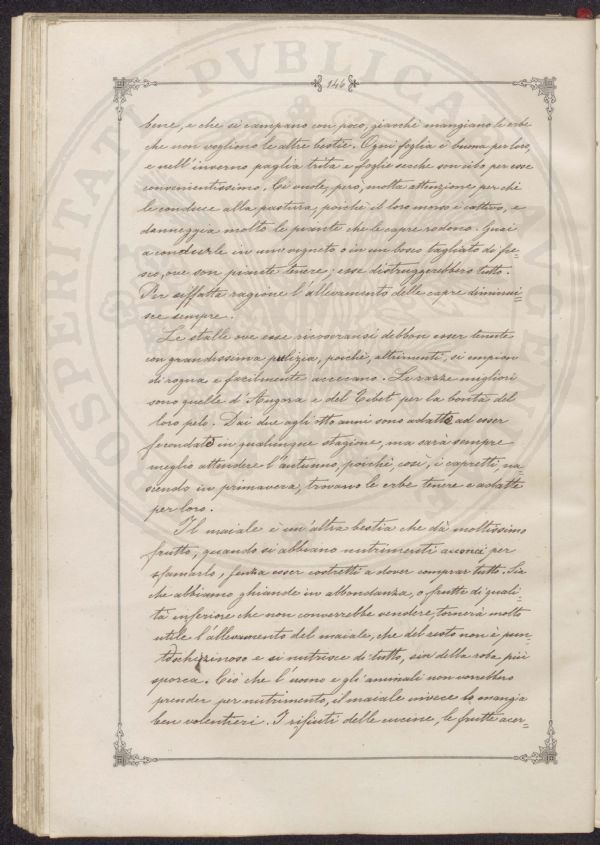 146
bene, e che si campano con poco, giacchè mangiano le erbe
che non vogliono le altre bestie. Ogni foglia è buona per loro,
e nell'inverno paglia trita e foglie secche son cibo per esse
convenientissimo. Ci vuole, però, molta attenzione per chi
le conduce alla pastura, poichè il loro morso è cattivo, e
danneggia molto le piante che le capre rodono. Guai
a condurle in un vigneto o in un bosco tagliato di fre=
sco, ove son piante tenere; esse distruggerebbero tutto.
Per siffatta ragione l'allevamento delle capre diminui=
sce sempre.
Le stalle ove esse ricoveransi debbon esser tenute
con grandissima pulizia, poichè, altrimenti, si empion
di rogna e facilmente accecano. Le razze migliori
sono quelle d'Angora e del Tibet per la bontà del
loro pelo. Dai due agli otto anni sono adatte ad esser
fecondate in qualunque stagione, ma sarà sempre
meglio attendere l'autunno, poichè, così, i capretti, na=
scendo in primavera, trovano le erbe tenere e adatte
per loro.
Il maiale è un'altra bestia che dà moltissimo
frutto, quando si abbiano nutrimenti acconci per
sfamarlo, senza esser costretti a dover comprar tutto. Sia
che abbiamo ghiande in abbondanza, o frutte di quali=
tà inferiore che non converrebbe vendere, tornerà molto
utile l'allevamento del maiale, che del resto non è pun=
to schizzinoso e si nutrisce di tutto, sia della roba più
sporca. Ciò che l'uomo e gli animali non vorrebbero
prender per nutrimento, il maiale invece lo mangia
ben volentieri. I rifiuti delle cucine, le frutte acer=
PROSPERITATI PVBLICAE AVGENDAE